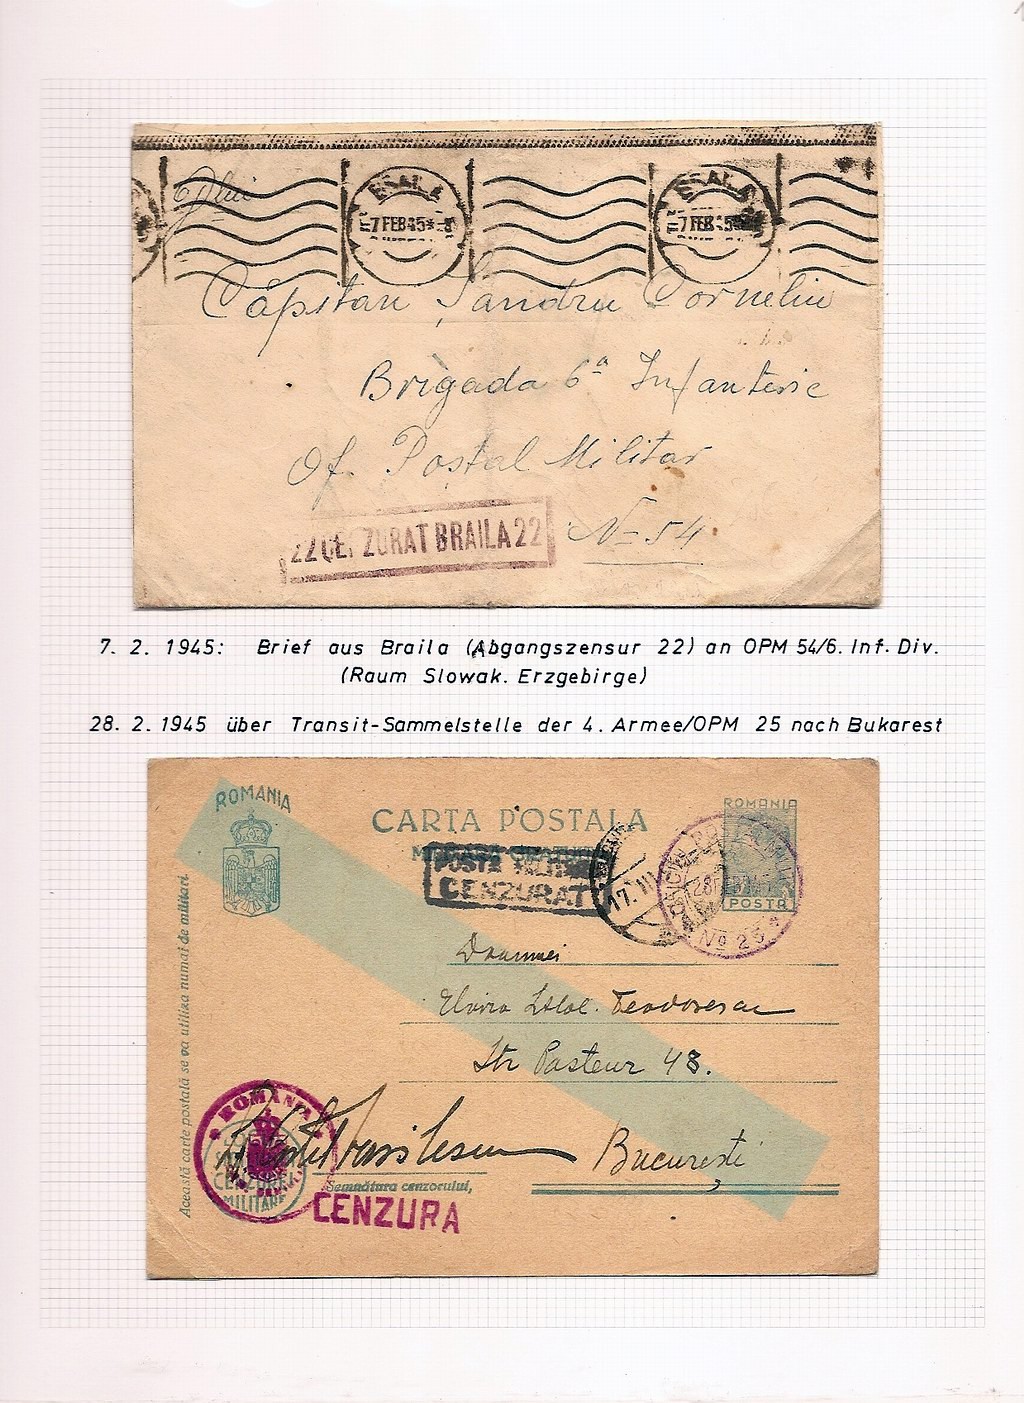 BRAILA
7 FEB 45
BRAILA
7 FEB 45
Căpitan Șandru Corneliu
Brigada 6ª Infanterie
Of. Poștal Militar
No 54
22 CENZURAT BRAILA 22
7. 2. 1945: Brief aus Braila (Abgangszensur 22) an OPM 54/6. Inf. Div.
(Raum Slowak. Erzgebirge)
28. 2. 1945 über Transit-Sammelstelle der 4. Armee/OPM 25 nach Bukarest
ROMANIA
ROMANIA
CARTA POSTALA
POSTA MILITARA
CENZURAT
17. III
28 FEB 945
POSTA
No 25
Doamnei
Teodorescu
Str Pasteur 48.
București
Această carte poștală se va utiliza numai de militari
ROMANIA
CENZUREI
MILITARE
Semnătura cenzorului,
CENZURA